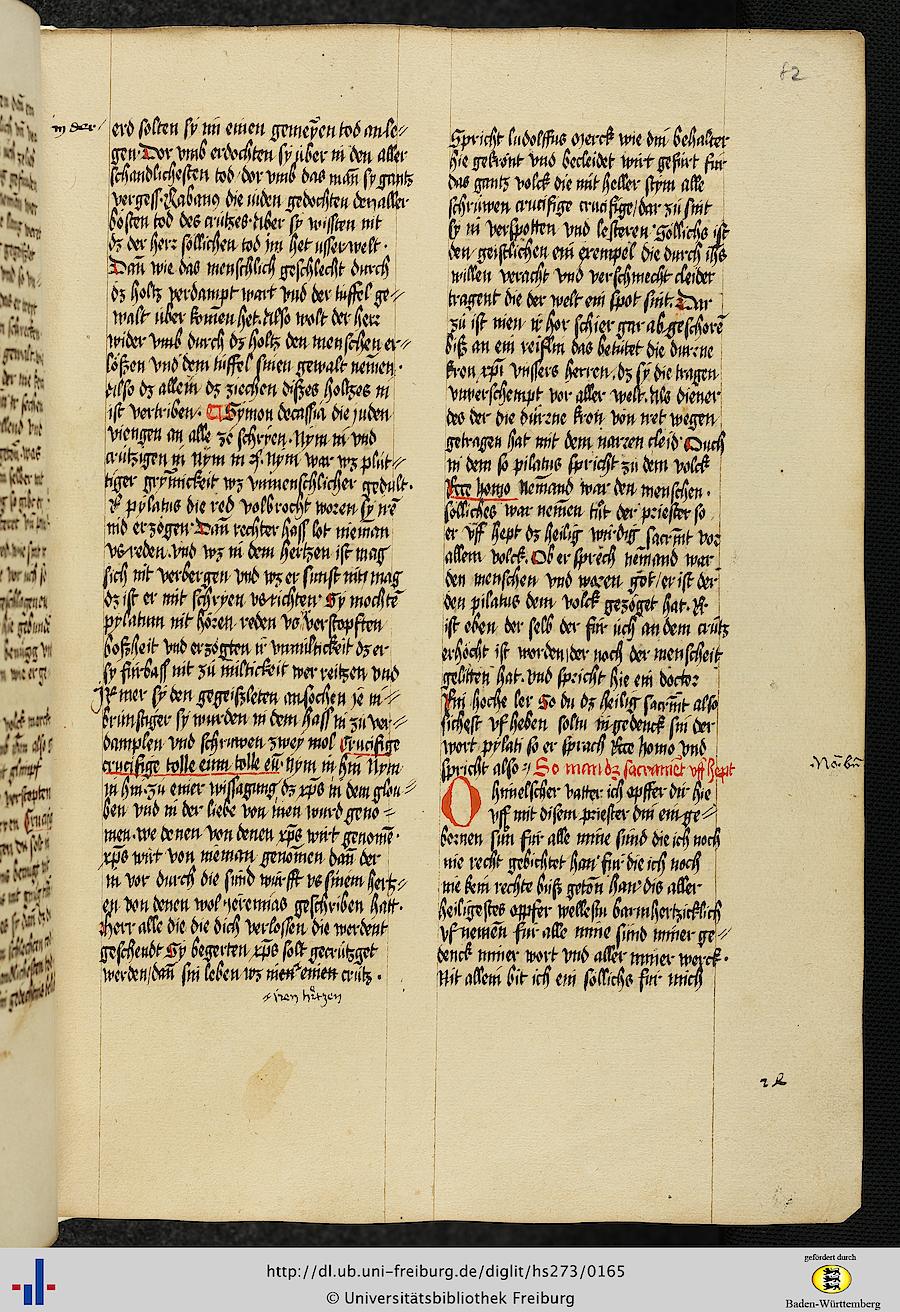 82
in der
erd solten sy im einen gemeÿen tod an le⸗
gen Dor vmb erdochten sÿ über in den aller
schandlichesten tod / dor vmb das mañ sÿ gantz
vergess· Rabanꝯ die iuden gedochten den aller
bösten tod des crützes Aber sÿ wissten nit
dz der herr söllichen tod im het vsser welt ·
Dañ wie das menschlich geschlecht durch
dz holtz verdampt wart vnd der tüffel ge⸗
walt über komen het· Also wolt der herr
wider vmb durch dz holtz den menschen er⸗
lößen vnd dem tüffel sinen gewalt nemen·
Also dz allein dz ziechen dißes holtzes in
ist vertriben· Symon de cassia die juden
viengen an alle ze schryen· Nym in vnd
crützigen in Nym in · nym war wz plüt⸗
tiger grÿmickeit wz vnmenschlicher gedult·
pylatus die red volbrocht woren sy
nid erzogen Dañ rechter hass lot nieman
vs reden· vnd wz in dem hertzen ist mag
sich nit verbergen vnd wz er sunst nit mag
dz ist er mit schryen vs richten Sy mochtē
pylatum nit hören reden vor verstopften
boßheit vnd erzögten ir vnmiltickeit dz er
sy fürbass nit zü miltickeit wer reitzen vnd
mer sy den gegeißleten ansochen je in⸗
brünstiger sy wurden in dem hass in zü ver⸗
damplen vnd schruwen zwey mol Crucifige
crucifige tolle eum tolle eū· Nym in hin Nym
in hin· zü ewer wissagung / dz xp̄s in dem glou⸗
ben vnd in der liebe von inen wurd geno⸗
men· we denen von denen xp̄s wirt genomē·
xp̄s wirt von nieman genomen dañ der
in vor durch die sünd würfft vs sinem hertz⸗
en von denen wol yeremias geschriben hatt·
Herr alle die die dich verlossen die werdent
geschendt Sÿ begerten xp̄s solt gecrützget
werden / dañ sin leben wz inen einen crütz·
iren hertzen
Spricht ludolffus merck wie din behalter
hie gekrönt vnd becleidet wirt gefürt für
das gantz volck die mit heller stym alle
schrüwen crucifige crucifige / dar zü sint
sy in verspotten vnd lesteren Söllichs ist
den geistlichen ein exempel die durch ihs
willen veracht vnd verschmecht cleider
tragent die der welt ein spot sint· Dar
zü ist inen ir hor schier gar ab geschorē
biß an ein reiflin das betütet die dürne
kron xpī vnssers herren· dz sy die tragen
vnverschempt vor aller welt· als diener
des der die dürzne kron von iret wegen
getragen hat mit dem narren cleid Ouch
in dem so pilatus spricht zu dem volck
Ecce homo nemand war den menschen·
sölliches war nemen tüt der priester so
er vff hept dz heilig wirdig sacrm̄t vor
allem volck· Ob er sprech nemand war
den menschen vnd woren got / er ist der
den pilatus dem volck gezöget hat·
ist eben der selb der für üch an dem crütz
erhöcht ist worden / der noch der menscheit
gelitten hat· vnd spricht hie ein doctor
Ein hoche ler So du dz heilig sacrm̄t also
sichest vf heben soltu ingedenck sin der
wort pylati so er sprach Ecce homo vnd
spricht also⸗ So man dz sacrament vff hept
O himelscher vatter ich opffer dir hie
vff mit disem priester din ein ge⸗
bornen sun für alle mine sünd die ich noch
nie recht gebichtet han für die ich noch
nie kein rechte büß geton han dis aller
heiligestes opffer wellestu barmhertzicklich
vf nemen für alle mine sünd miner ge⸗
denck miner wort vnd aller miner werck·
Nit allein bit ich ein söllichs für mich
http://dl.ub.uni-freiburg.de/diglit/hs273/0165
© Universitätsbibliothek Freiburg
gefördert durch
Baden-Württemberg